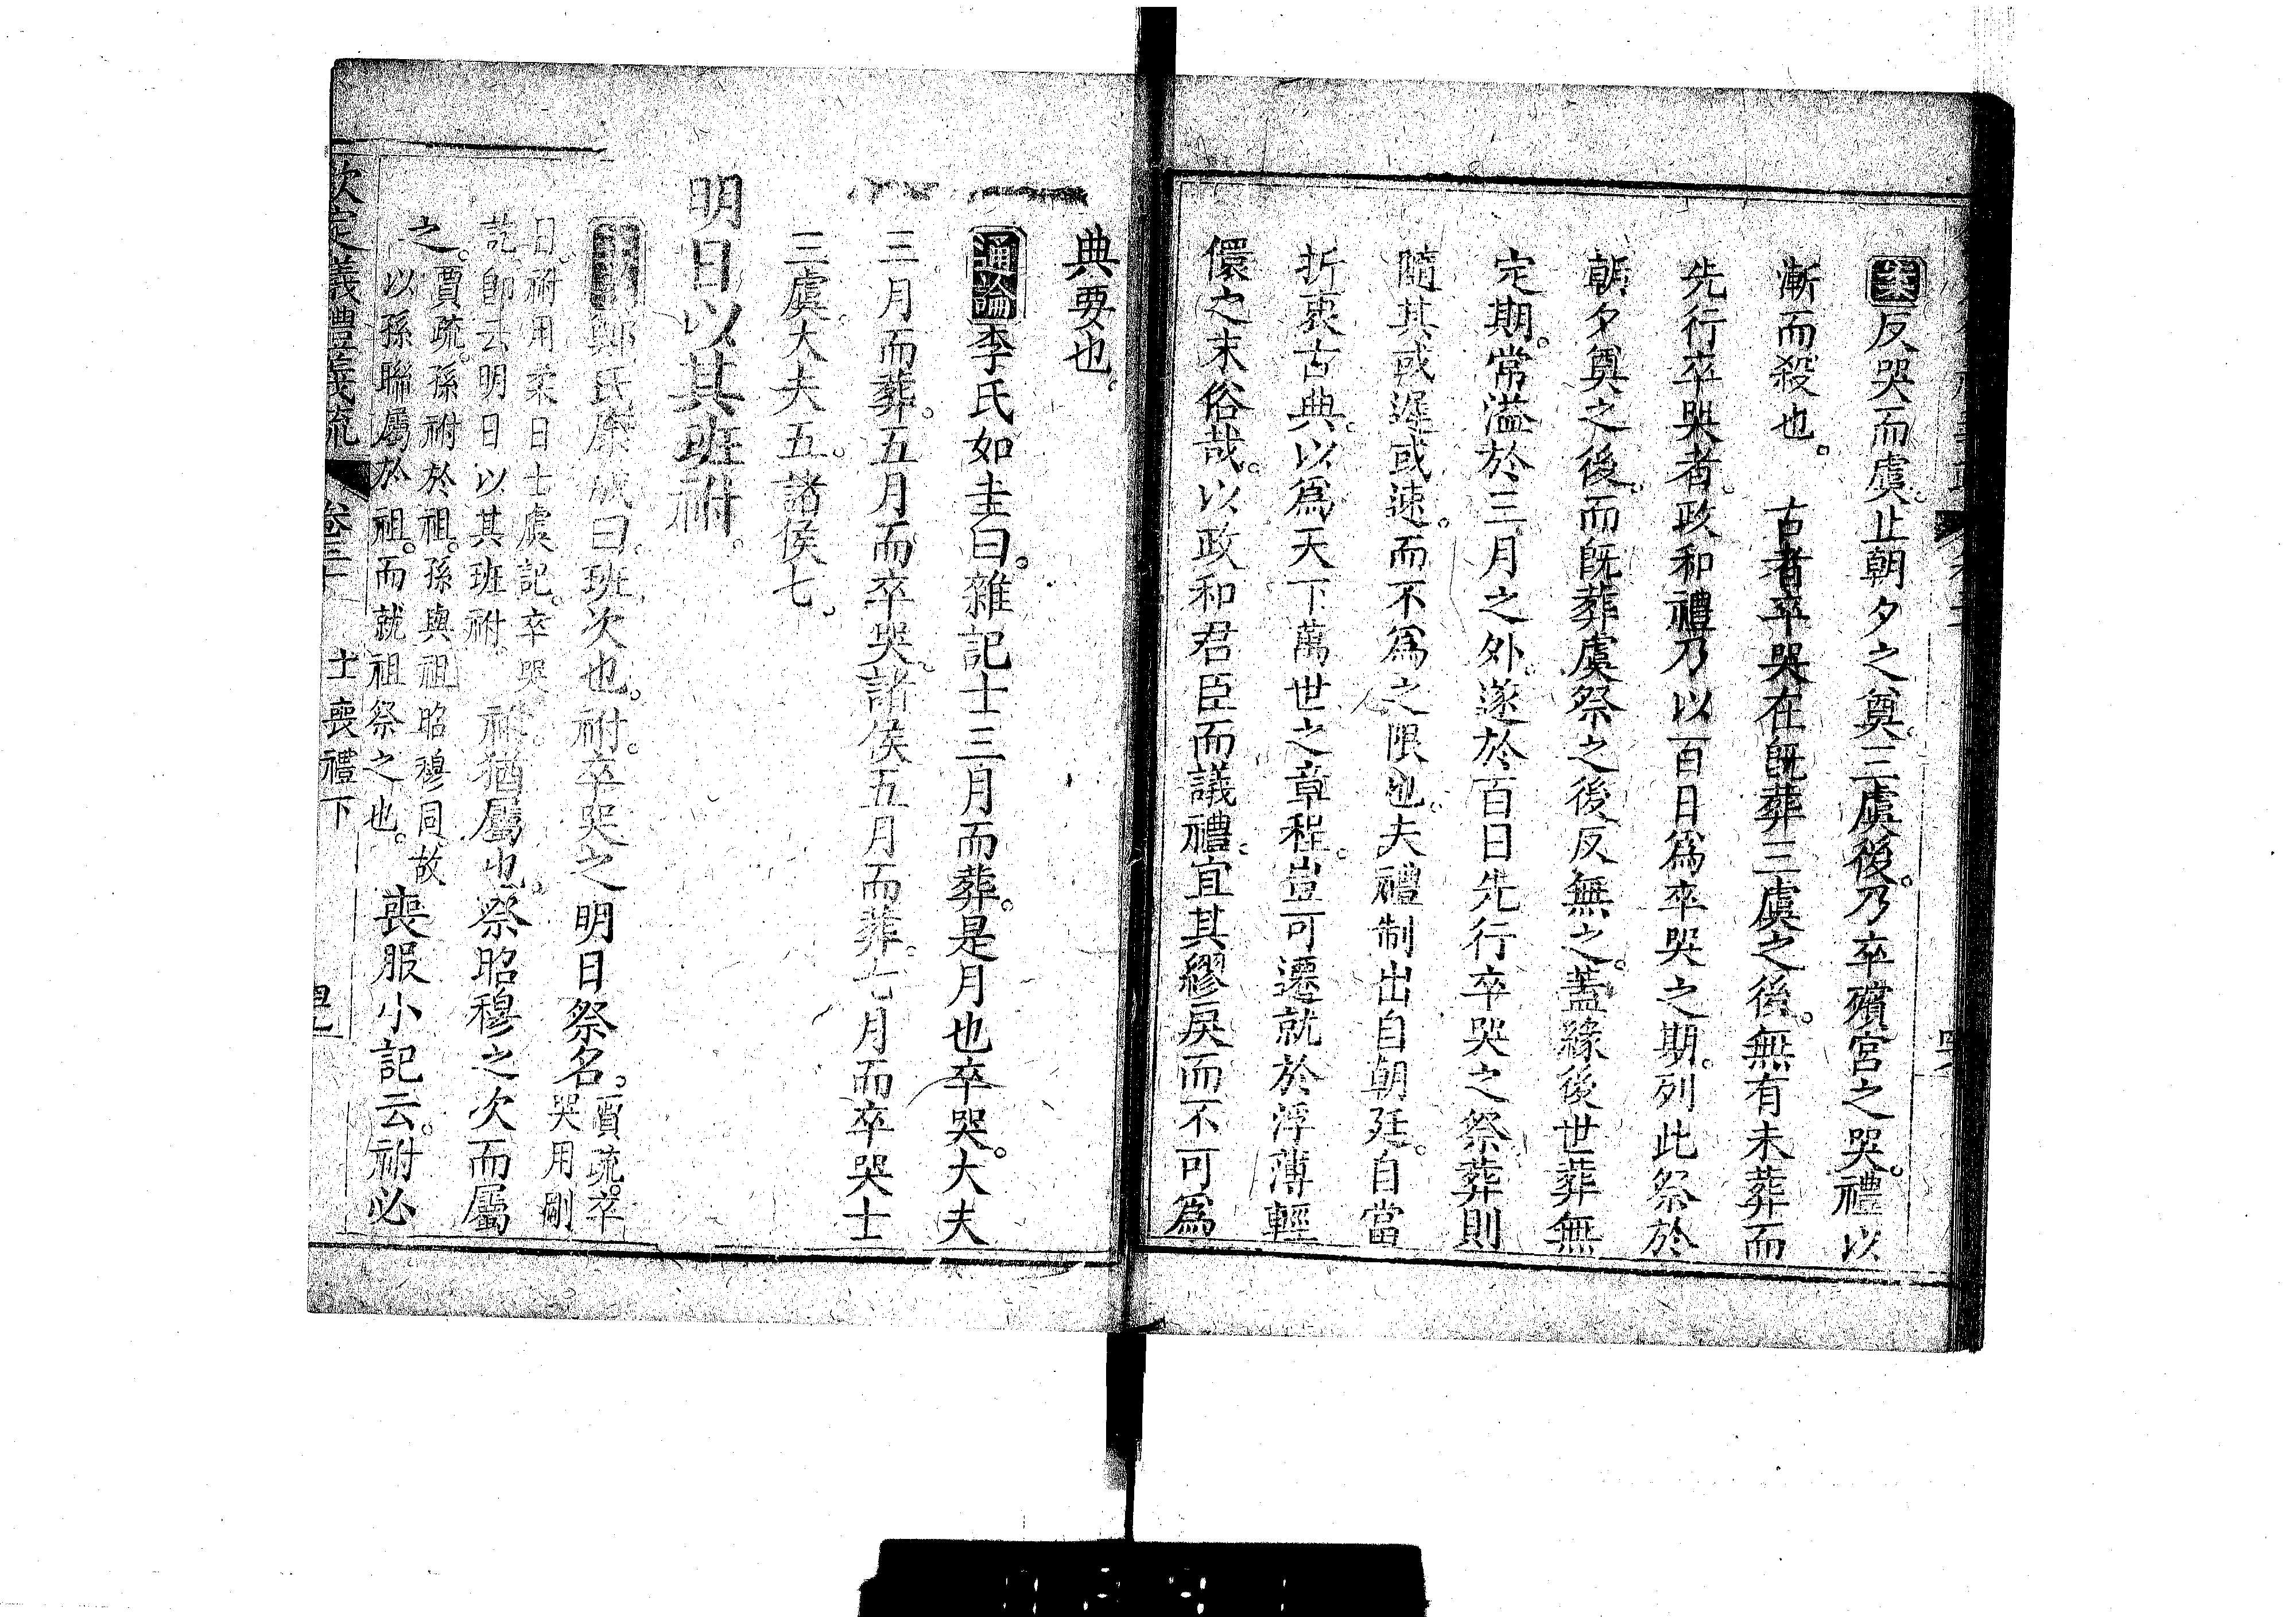 案反哭而虞。止朝夕之奠。三虞後。乃卒殯宮之哭。禮以
漸而殺也。　古者卒哭在旣葬三虞之後。無有未葬而
先行卒哭者。政和禮乃以百日爲卒哭之期。列此祭於
朝夕奠之後。而旣葬虞祭之後反無之。蓋緣後世葬無
定期。常溢於三月之外。遂於百日先行卒哭之祭。葬則
隨其或遲或速。而不爲之限也。夫禮制出自朝廷。自當
折衷古典。以爲天下萬世之章程。豈可遷就於浮薄輕
儇之末俗哉。以政和君臣而議禮。宜其繆戾而不可爲
典要也。
通論李氏如圭曰。雜記士三月而葬。是月也卒哭。大夫
三月而葬。五月而卒哭。諸侯五月而葬。七月而卒哭士
三虞。大夫五。諸侯七。
明日以其班祔。
鄭氏康成曰。班次也。祔。卒哭之明日祭名。賈疏。卒
哭用剛
日。祔用柔日士虞記。卒哭
訖。卽云明日以其班祔。祔猶屬也。祭昭穆之次而屬
之。賈疏。孫祔於祖。孫與祖昭穆同。故
以孫聯屬於祖。而就祖祭之也。喪服小記云。祔必
欽定儀禮義疏　卷三十　士喪禮下